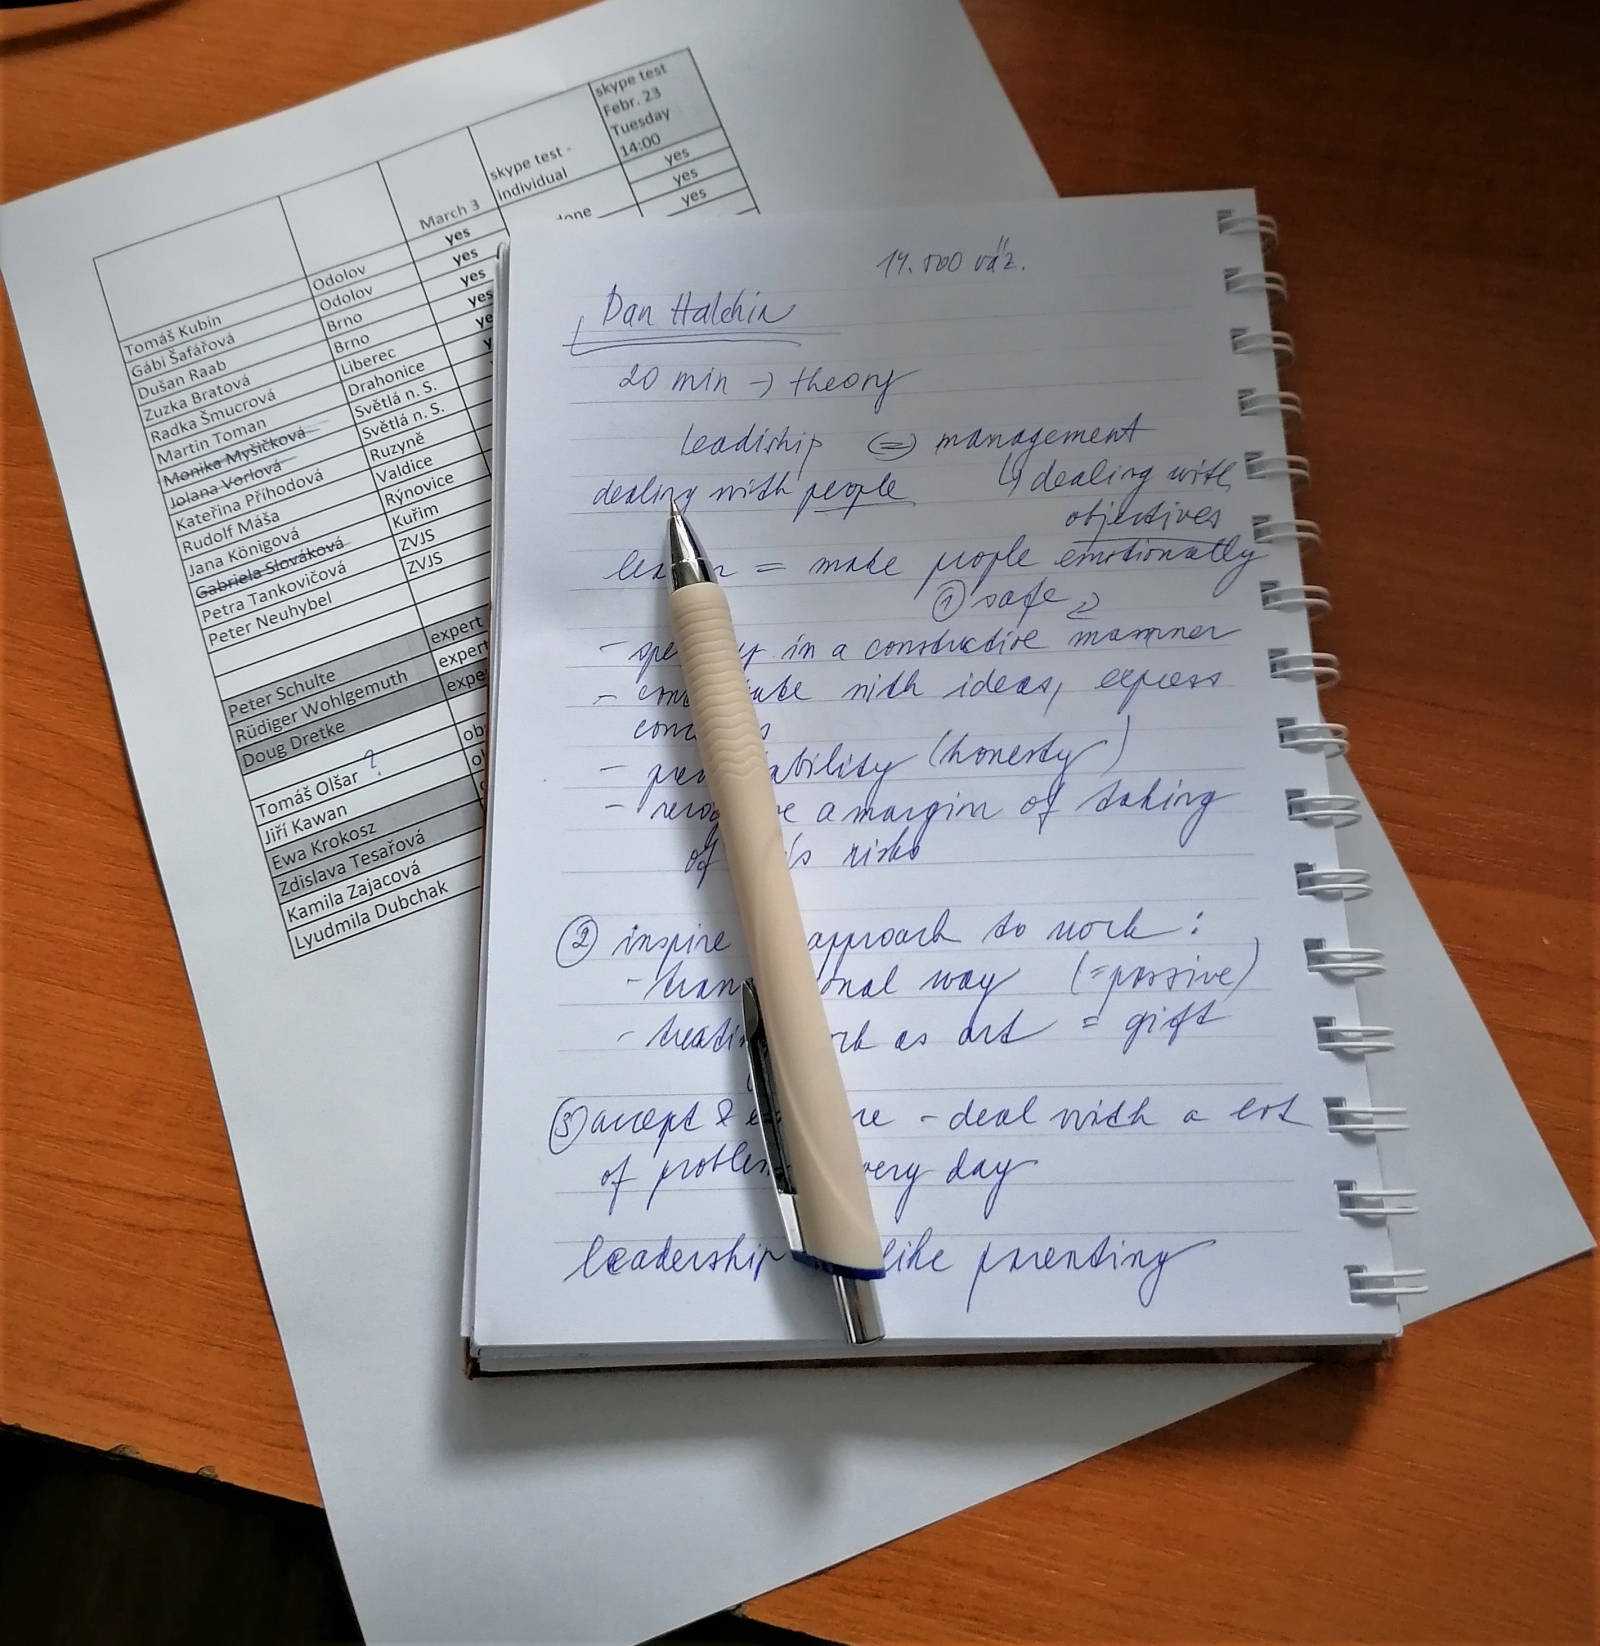 skype test
Febr. 23
Tuesday
14:00
skype test -
individual
March 3
yes
yes
yes
Tomáš Kubín Odolov yes
Gábi Šafářová Odolov yes
Dušan Raab Brno yes
Zuzka Bratová Brno yes
Radka Šmucrová Liberec
Martin Toman Drahonice
Monika Myšičková Světlá n. S.
Jolana Vorlová Světlá n. S.
Kateřina Příhodová Ruzyně
Rudolf Máša Valdice
Jana Königová Rýnovice
Gabriela Slováková Kuřim
Petra Tankovičová ZVJS
Peter Neuhybel ZVJS
Peter Schulte expert
Rüdiger Wohlgemuth expert
Doug Dretke
Tomáš Olšar ?
Jiří Kawan
Ewa Krokosz
Zdislava Tesařová
Kamila Zajacová
Lyudmila Dubchak
Dan Halchin
20 min → theory
leadiship management
dealing with people ↳ dealing with
objectives
= make people emotionally
① safe
- in a constructive manner
- with ideas, express
- (honesty)
- a margin of taking
of risks
② inspire approach to work :
- way (=passive)
- as art = gift
③ accept & - deal with a lot
of day
leadership like parenting